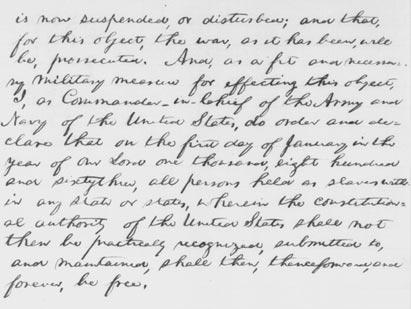 is now suspended, or disturbed; and that,
for this object, the war, as it has been, will
be, prosecuted. And, as a fit and necessa-
ry military measure for effecting this object,
I, as Commander-in-Chief of the Army and
Navy of the United States, do order and de-
clare that on the first day of January in the
year of Our Lord one thousand, eight hundred
and sixtythree, all persons held as slaves with-
in any state or states, wherein the constitution-
al authority of the United States shall not
then be practically recognized, submitted to,
and maintained, shall then, thenceforward, and
forever, be free.